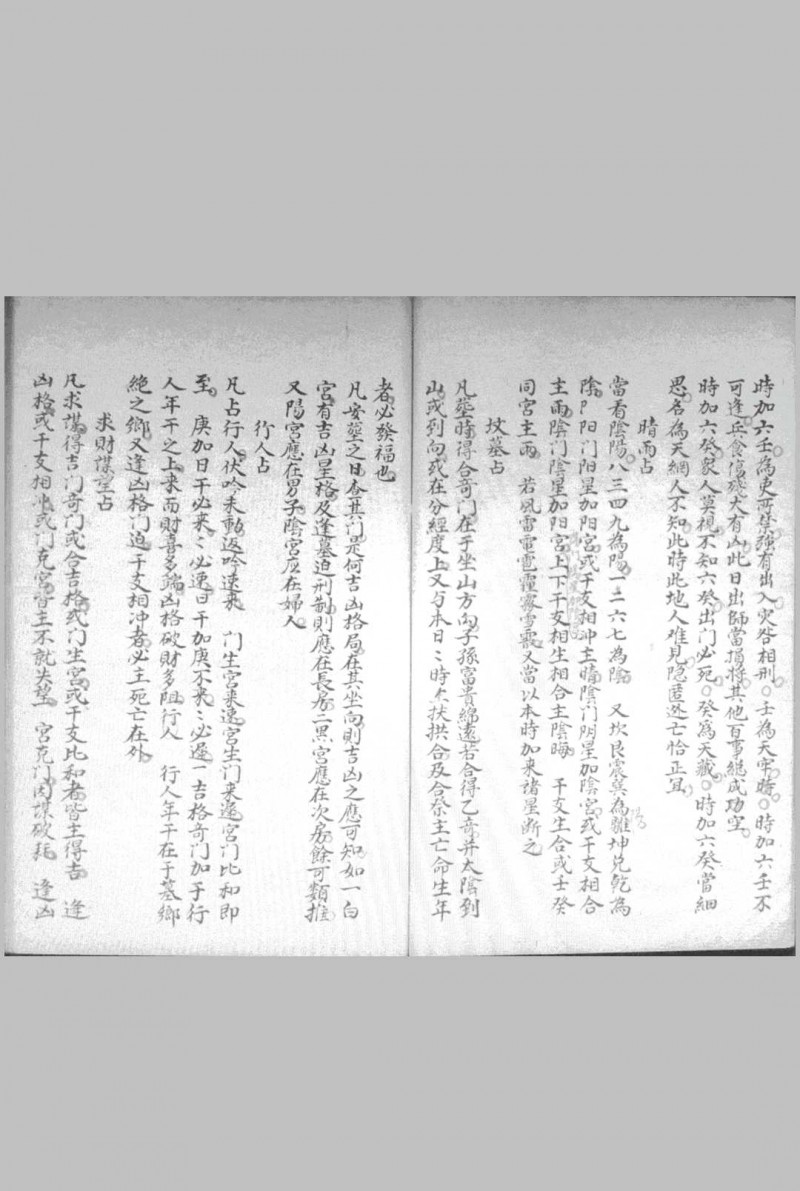 時加六壬為吏所禁強有出入灾咎相刑。壬為天牢時。時加六壬不
可逢兵食傷殘大有凶此日出師當損將其他百事總成功空。
時加六癸衆人莫視不知六癸出門必死。癸為天藏。時加六癸當細
思名為天網人不知此時此地人难見隐匿逃亡恰正宜
晴雨占
當看陰陽八三四九為陽一二六七為陰 又坎艮震巽為離坤兑乾為
陰阝阳门阳星加阳宮或干支相冲主晴陰门阴星加陰宮或干支相合
主雨陰门陰星加阳宮上下干支相生相合主陰晦 干支生合或壬癸
同宮主雨 若風雷電雹霆霧雪霰又當以本時加来諸星断之
坟墓占
凡葬時得合奇门在于坐山方向子孫富貴綿遠若合得乙奇并太陰到
山或到向或在分經度上又与本日〻時支扶拱合及合祭主亡命生年
者必發福也
凡安葬之日查其门是何吉凶格局在其坐向則吉凶之應可知如一白
宮有吉凶星格及逢墓迫刑制則應在長房二黑宮應在次房餘可類推
又陽宮應在男子陰宮应在婦人
行人占
凡占行人伏吟未動返吟速来 门生宮来速宮生门来遲宮门比和即
至 庚加日干必来〻必速日干加庚不来〻必遲一吉格奇门加于行
人年干之上来而財喜多端凶格破財多阻行人 行人年干在于墓鄉
絶之鄉又逢凶格门迫干支相冲者必主死亡在外
求財謀望占
凡求謀得吉门奇门或合吉格或门生宮或干支比和者皆主得吉 逢
凶格或干支相冲或门克宮皆主不就失望 宮克门因謀破耗 逢凶